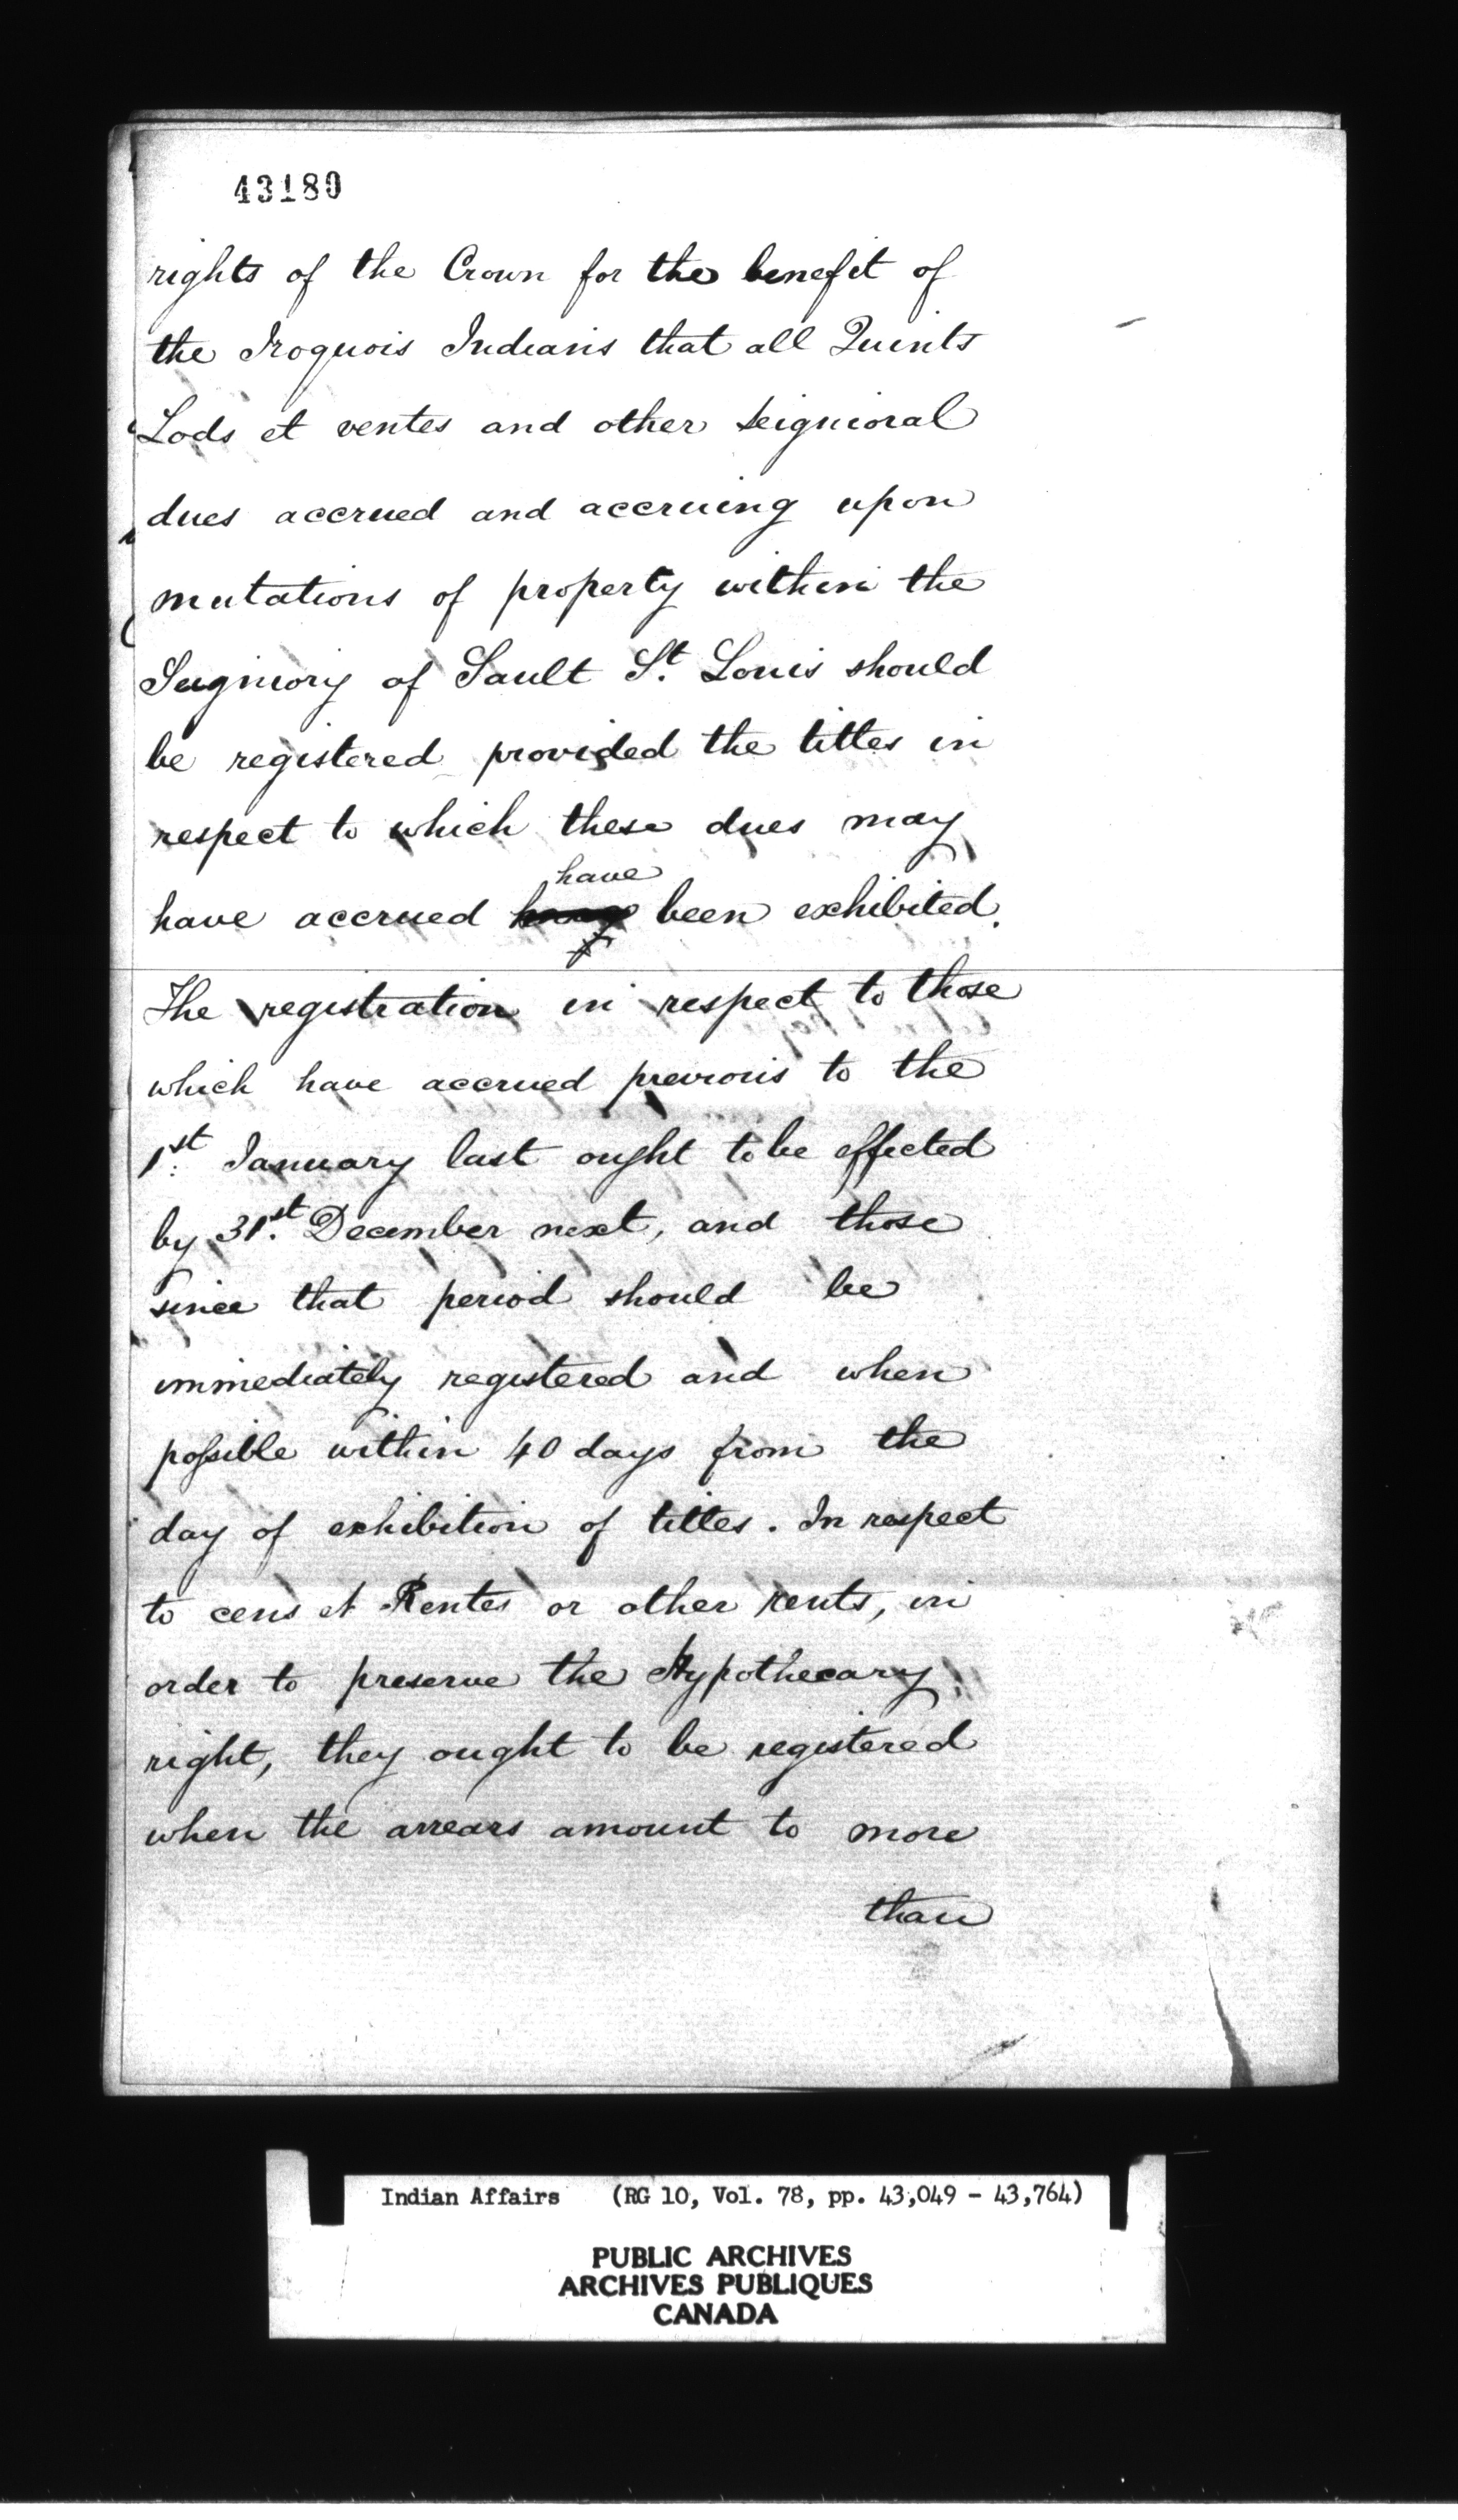 43180
rights of the Crown for the benefit of
the Iroquois Indians that all Quints
Lods et ventes and other seignioral
dues accrued and accruing upon
mutations of property within the
Seigniory of Sault St. Louis should
be registered provided the titles in
respect to which these dues may
have
have accrued been exhibited.
The registration in respect to those
which have accrued previous to the
1st January last ought to be effected
by 31st. December next, and those
since that period should be
immediately registered and when
possible within 40 days from the
day of exhibition of titles. In respect
to cens et Rentes or other rents, in
order to preserve the Hypothecary
right, they ought to be registered
when the arrears amount to more
than
Indian Affairs (RG 10, Vol. 78, pp. 43,049 - 43,764)
PUBLIC ARCHIVES
ARCHIVES PUBLIQUES
CANADA